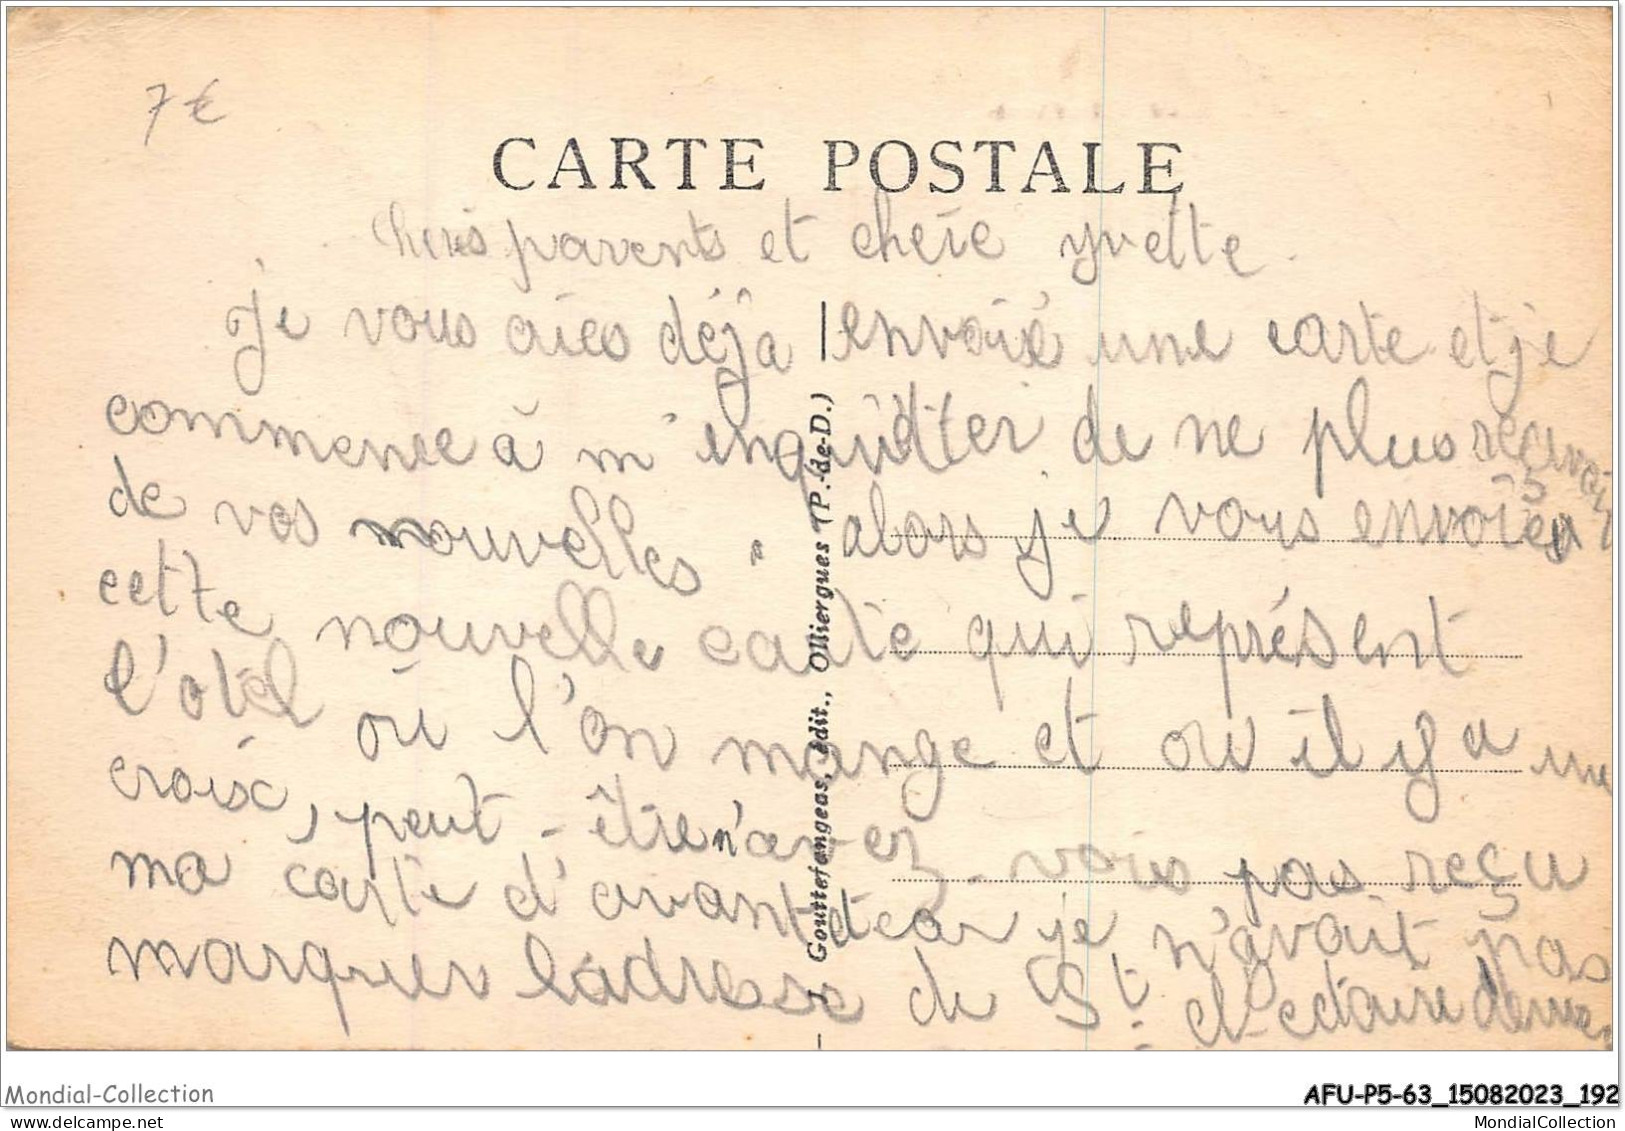 7 €
CARTE POSTALE
cheris parents et cherie yvette.
Je vous aies déjà envoié une carte et je
commence à m'inquiditer de ne plus recevoir
de vos nouvelles. alors je vous envoies
cette nouvelle carte qui représent
l'otel où l'on mange et ou il y a une
croix, peut-être n'avez-vous pas reçu
ma carte d'avant car je n'avait pas
marquer l'adresse de St.
Gouttefangeas, édit., Olliergues (P.-de-D.)
Mondial-Collection
AFU-P5-63_15082023_192
mondial-collection.com
MondialCollection